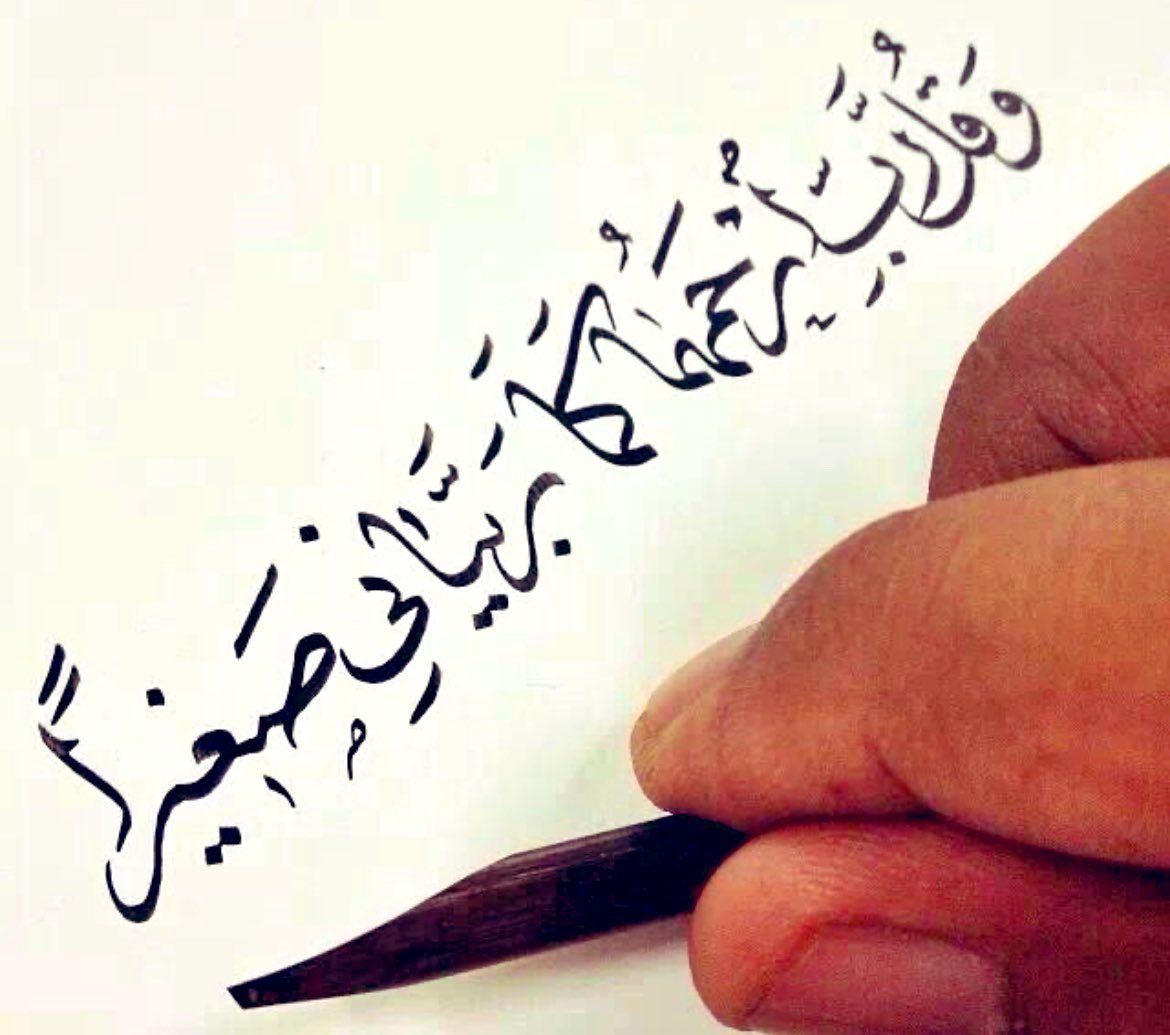 وَقُلْ رَّبِّ ارْحَمْهُمَا كَمَا رَبَّيَانِي صَغِيرًا